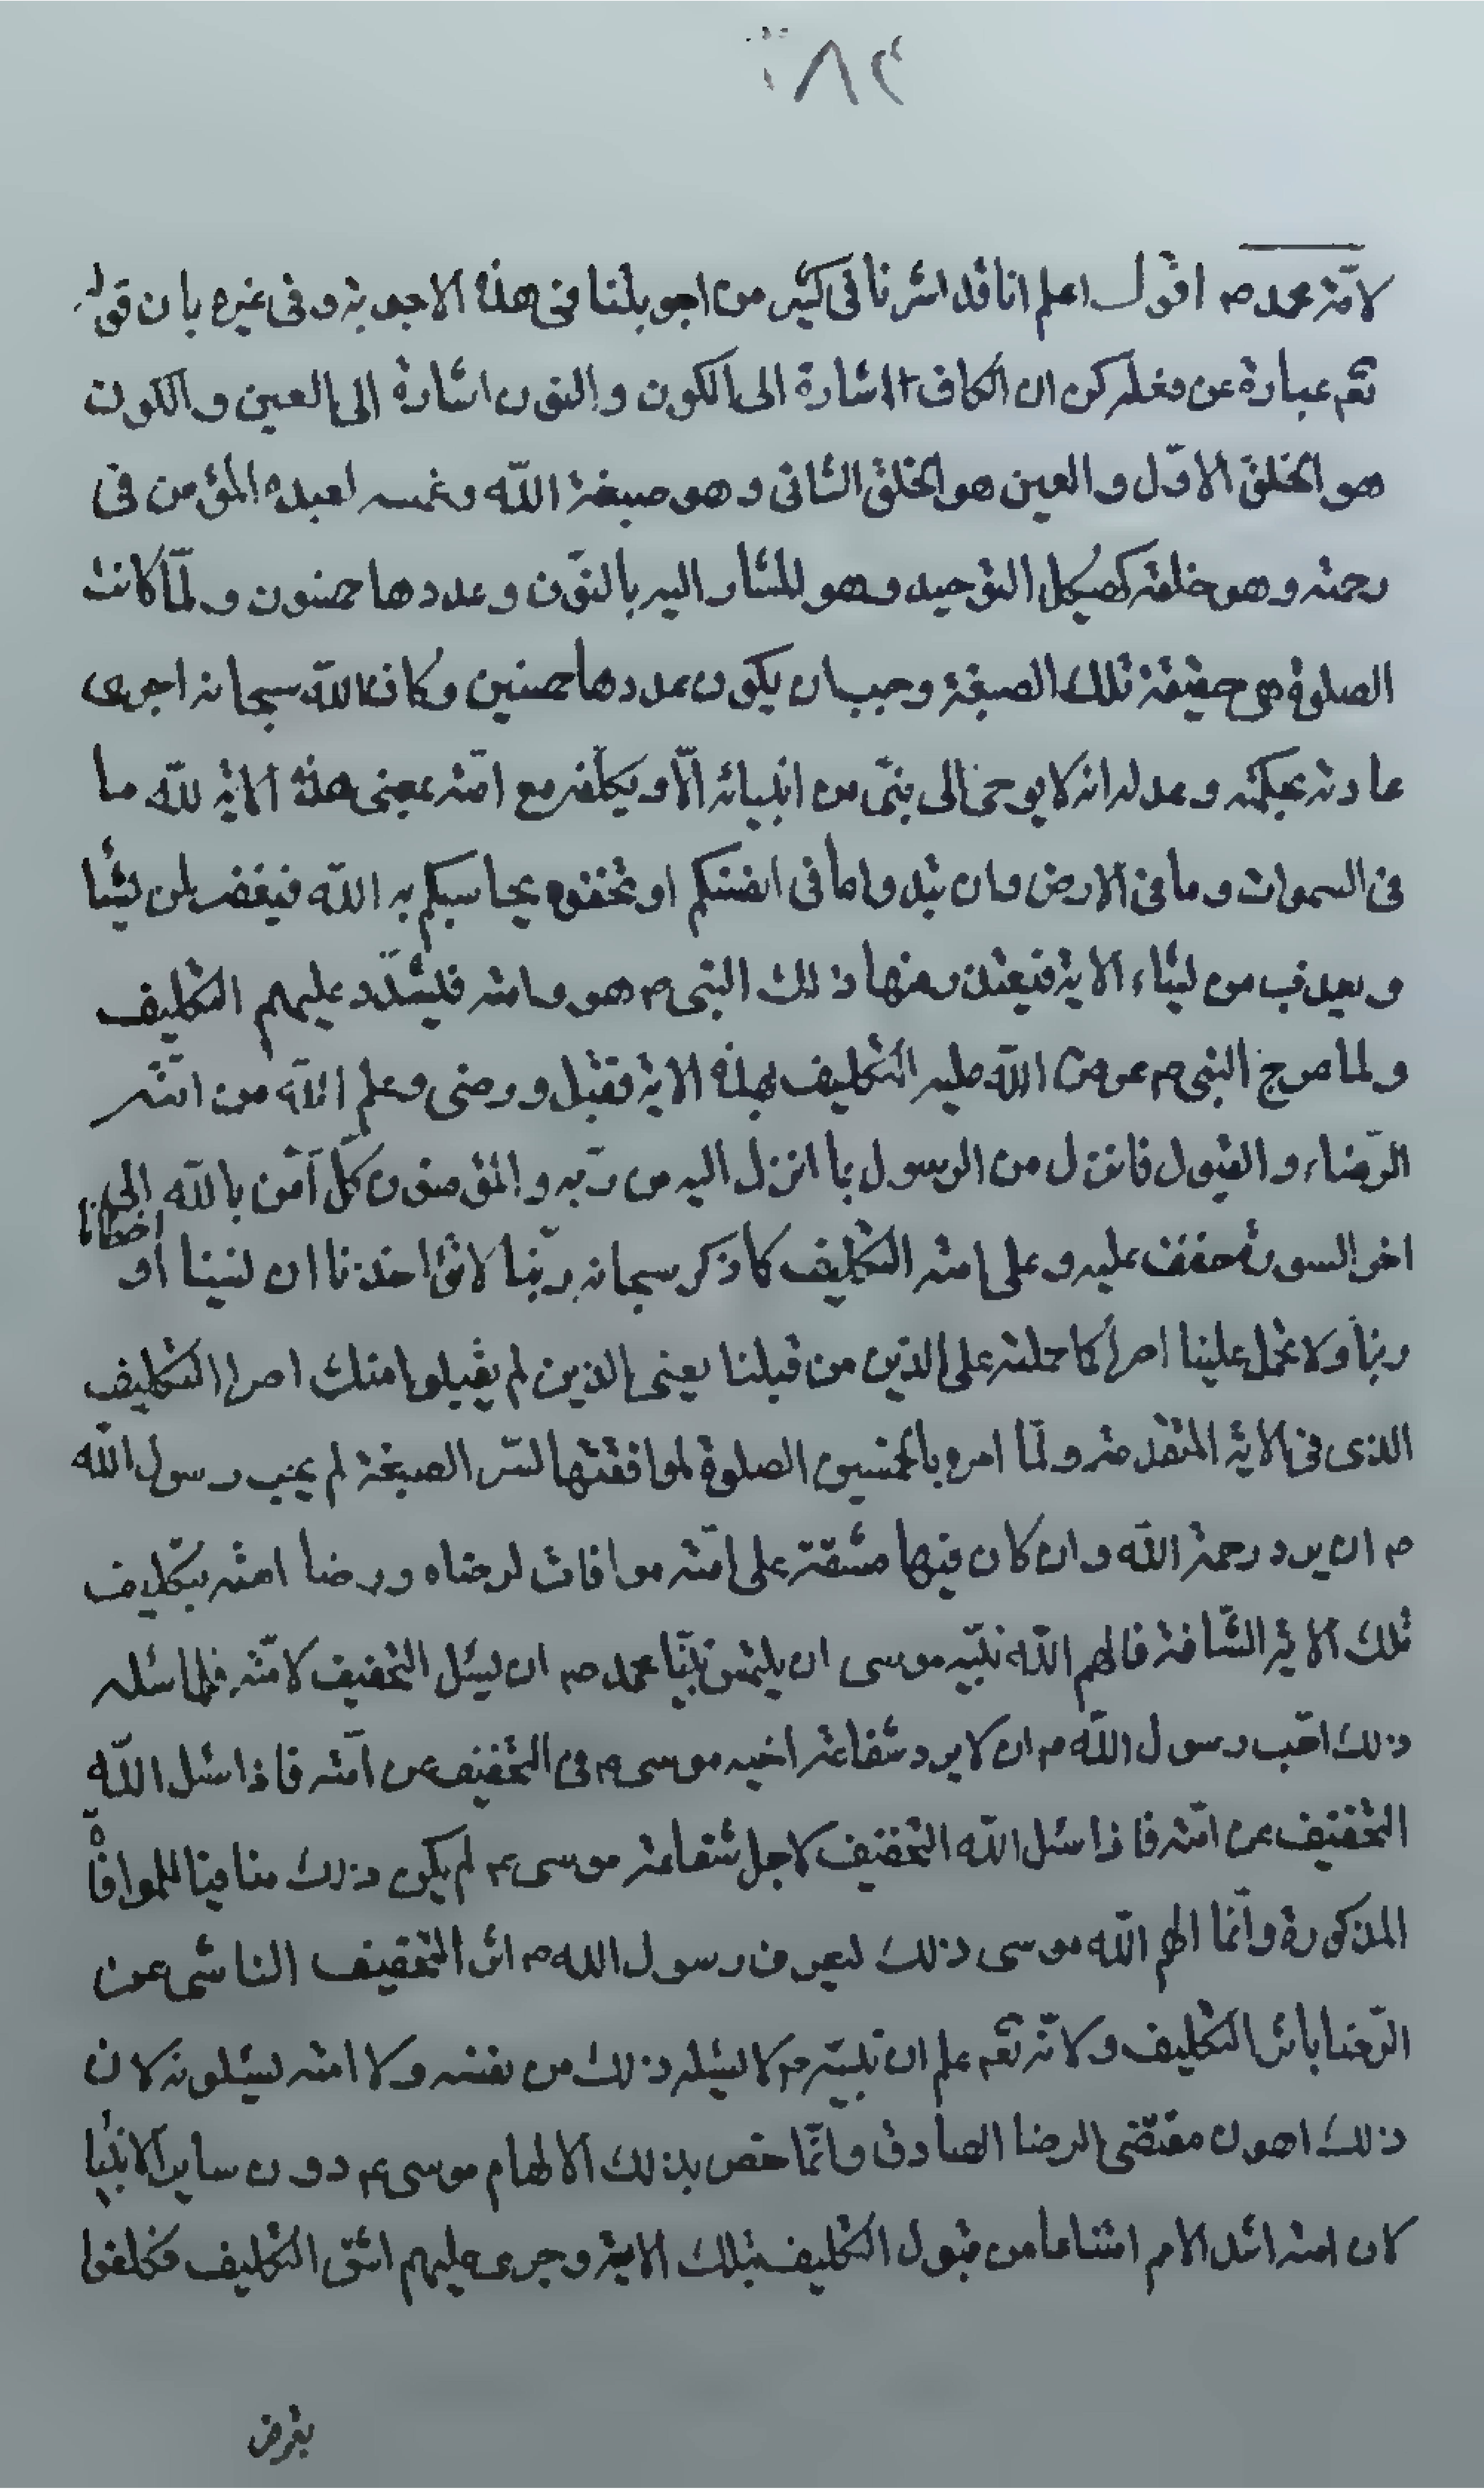 ٢٨٣
لامّة محمد ص اقول اعلم انا قد اشرنا فى كثير من اجوبتنا فى هذه الاجوبة و فى غيره بان قوله
تعم عبارة عن فعله كن ان الكاف اشارة الى الكون و النون اشارة الى العين و الكون
هو الخلق الاوّل و العين هو الخلق الثانى و هو صبغة اللّه و غمسه لعبده المؤمن فى
رحمته و هو خلقة كهيكل التوحيد و هو المشار اليه بالنّون و عددها خمسون و لمّا كانت
الصلوة هى حقيقة تلك الصبغة وجب ان يكون عددها خمسين و كان اللّه سبحانه اجرى
عادته بحكمته و عدله انه لا يوحى الى نبىّ من انبيائه الّا و يكلّفه مع امّته بمعنى هذه الاية للّه ما
فى السموات و ما فى الارض و ان تبدوا ما فى انفسكم او تخفوه يحاسبكم به اللّه فيغفر لمن يشأ
و يعذب من يشاء الاية فيعتذر منها ذلك النبى ص هو و امته فيشدّد عليهم التكليف
و لما عرج النبى ص عرض اللّه عليه التكليف بهذه الاية فقبل و رضى و علم اللّه من امّته
الرّضاء و القبول فانزل من الرسول بما انزل اليه من ربّه و المؤمنون كلّ آمن باللّه الى
اخر السورة خفف عليه و على امته التكليف كما ذكر سبحانه ربّنا لا تؤاخذنا ان نسينا او اخطانا
ربنا و لا تحمل علينا اصرا كما حملته على الذين من قبلنا يعنى الذين لم يقبلوا منك اصرا التكليف
الذى فى الاية المتقدمة و لمّا امره بالخمسين الصلوة لموافقتها لسّر الصبغة لم يحب رسول اللّه
ص ان يرد رحمة اللّه و ان كان فيها مشقة على امّته موافاة لرضاه و رضا امته بتكليف
تلك الاية الشّاقة فالهم اللّه نبيّه موسى ان يلتمس نبيّنا محمد ص ان يسئل التخفيف لامّته فلما سئله
ذلك احّب رسول اللّه ص ان لا يرد شفاعة اخيه موسى ع فى التخفيف عن امّته فاذا سئل اللّه
التخفيف عن امّته فاذا سئل اللّه التخفيف لاجل شفاعة موسى ع لم يكن ذلك منافيا للموافاة
المذكورة و انّما الهم اللّه موسى ذلك ليعرف رسول الله ص انّ التخفيف الناشى عن
الرّضا باشّ التكليف و لانّه تعم علم ان نبيّه ص لا يسئله ذلك من نفسه و لا امته يسئلونه لان
ذلك اهون مقتضى الرضا الصادق و انّما خص بذلك الالهام موسى ع دون ساير الانبيا
لان امته اشد الامم امتناعا من قبول التكليف بتلك الاية و جرى عليهم اشق التكليف فكلفوا
بقرض